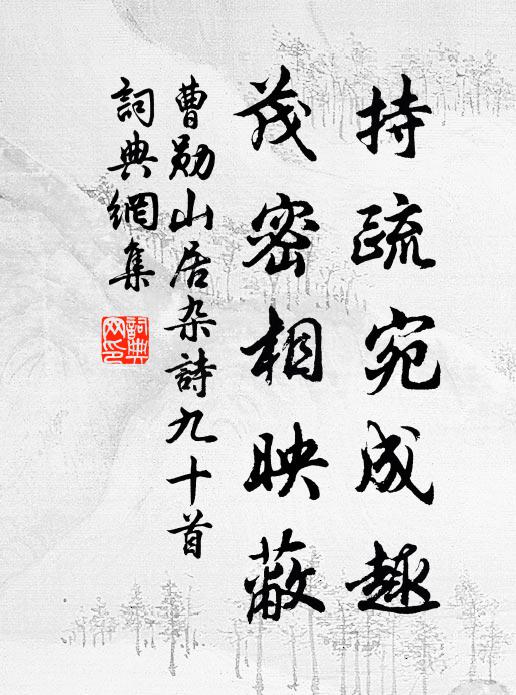 持疏宛成趣
茂密相映蔽
曹勛山居杂詩九十首
詞典網集
詞典網印